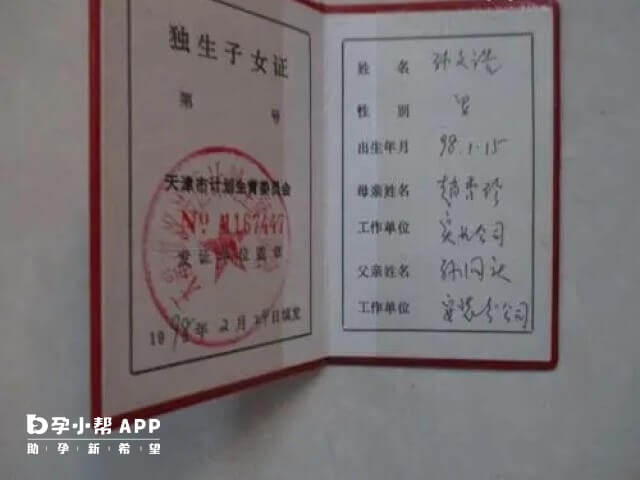 独生子女证
第 号
天津市计划生育委员会
No 1167447
发证单位盖章
1998年2月 日填发
姓 名 孙文浩
性 别 男
出生年月 98.1.15
母亲姓名
工作单位 公司
父亲姓名 孙
工作单位 安装分公司
孕小帮APP
助孕新希望